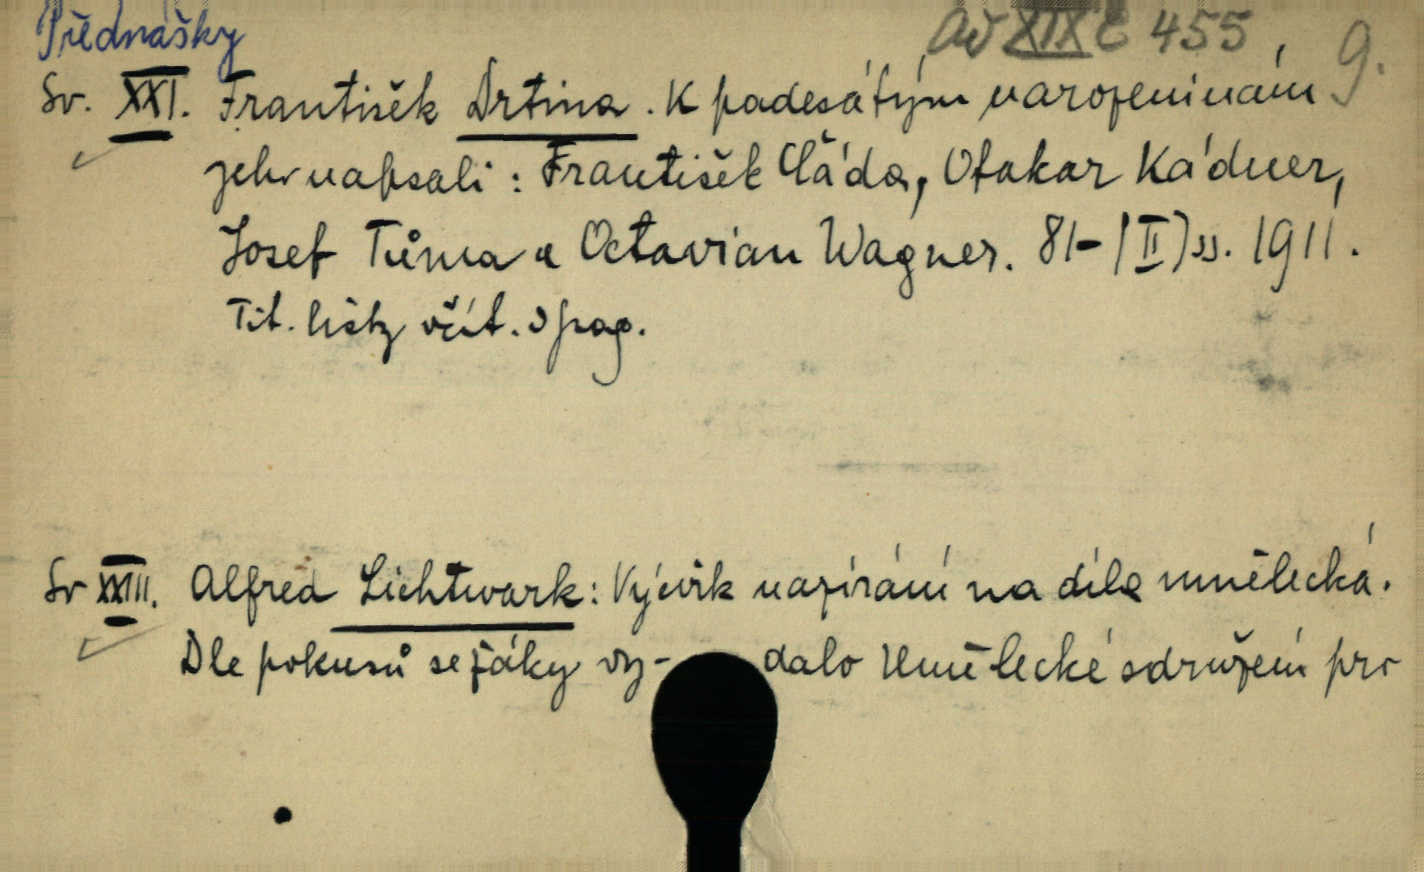 Přednášky
Ač XIX E 455, 9.
Sv. XXI. František Drtina. K padesátým narozeninám
jeho napsali: František Čáda, Otakar Kádner,
Josef Tůma a Octavian Wagner. 81-(II) ss. 1911.
Tit. listy včít. v pag.
Sv XXIII. Alfred Lichtwark: Výcvik nazírání na díla umělecká.
Dle pokusů se žáky vy-dalo Umělecké sdružení pro